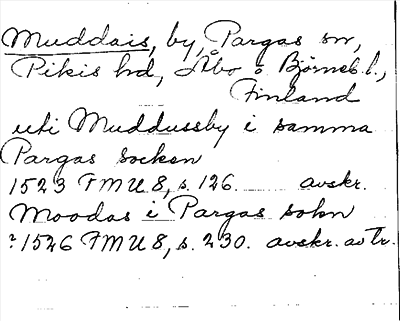 Muddais, by, Pargas sn,
Pikis hd, Åbo o Björneb. l.,
Finland
uti Muddussby i samma
Pargas socken
1523 FMU 8, s. 126. avskr.
Moodas i Pargas sokn
? 1526 FMU 8, s. 230. avskr. av tr.